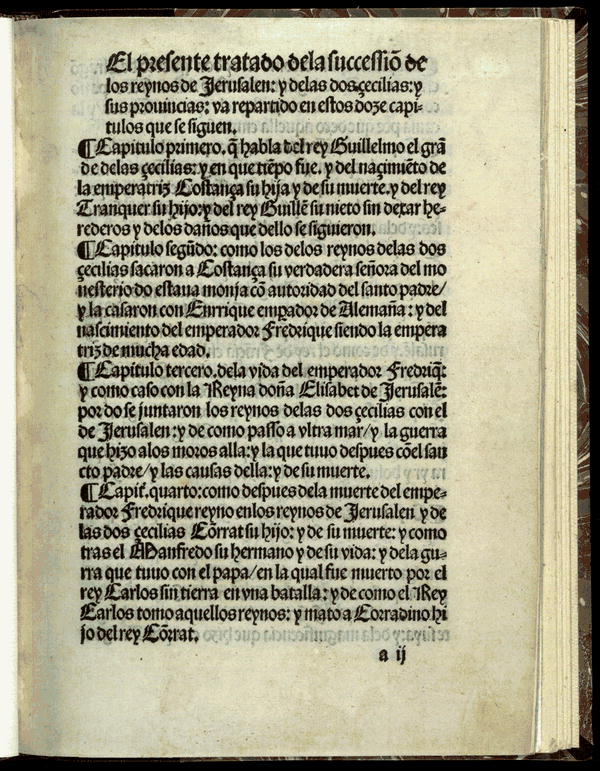 El presente tratado dela successiõ de
los reynos de Jerusalen: y delas dos çecilias: y
sus prouincias: va repartido en estos doze capi-
tulos que se siguen.
¶ Capitulo primero. q̃ habla del rey Guillelmo el grã
de delas çecilias: y en que tiẽpo fue. y del naçimiẽto de
la emperatriz Costança su hija y de su muerte. y del rey
Tranquer su hijo: y del rey Guillẽ su nieto sin dexar he-
rederos y delos daños que dello se siguieron.
¶ Capitulo segũdo: como los delos reynos delas dos
çecilias sacaron a Costança su verdadera señora del mo
nesterio do estaua monja cõ autoridad del santo padre/
y la casaron con Enrrique empador de Alemaña: y del
nascimiento del emperador Fredrique siendo la empera
triz de mucha edad.
¶ Capitulo tercero. dela vida del emperador Fredriq̃:
y como caso con la Reyna doña Elisabet de Jerusalẽ:
por do se juntaron los reynos delas dos çecilias con el
de Jerusalen: y de como passo a vltra mar/ y la guerra
que hizo alos moros alla: y la que tuuo despues cõel san
cto padre/ y las causas della: y de su muerte.
¶ Capit̃. quarto: como despues dela muerte del empe-
rador Fredrique reyno enlos reynos de Jerusalen y de
las dos çecilias Cõrrat su hijo: y de su muerte: y como
tras el Manfredo su hermano y de su vida: y dela gu-
rra que tuuo con el papa/ en la qual fue muerto por el
rey Carlos sin tierra en vna batalla: y de como el Rey
Carlos tomo aquellos reynos: y mato a Corradino hi
jo del rey Cõrrat.
a ij